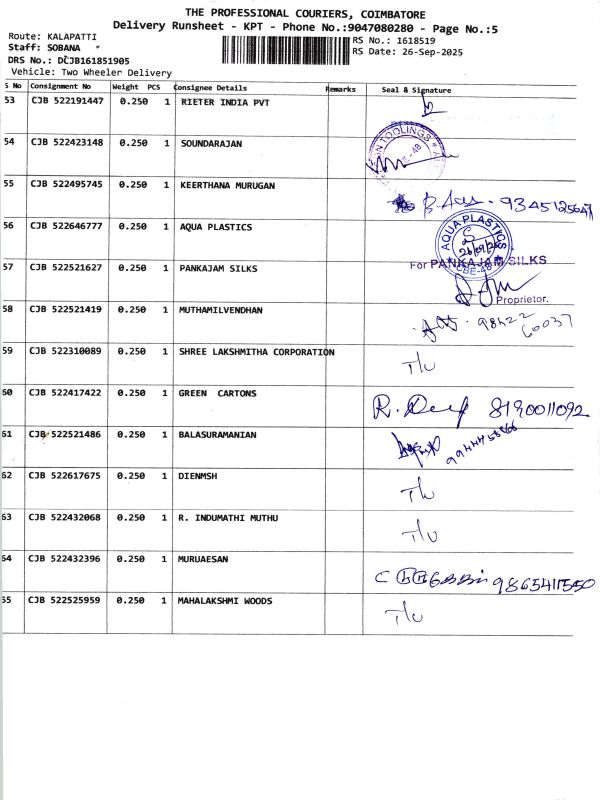 THE PROFESSIONAL COURIERS, COIMBATORE
Delivery Runsheet - KPT - Phone No.:9047080280 - Page No.:5
Route: KALAPATTI
Staff: SOBANA
DRS No.: DCJB161851905
Vehicle: Two Wheeler Delivery
RS No.: 1618519
RS Date: 26-Sep-2025
S No Consignment No Weight PCS Consignee Details Remarks Seal & Signature
53 CJB 522191447 0.250 1 RIETER INDIA PVT
54 CJB 522423148 0.250 1 SOUNDARAJAN TOOLINGS
55 CJB 522495745 0.250 1 KEERTHANA MURUGAN
56 CJB 522646777 0.250 1 AQUA PLASTICS AQUA PLASTICS CBE-48
57 CJB 522521627 0.250 1 PANKAJAM SILKS For PANKAJAM SILKS
Proprietor.
58 CJB 522521419 0.250 1 MUTHAMILVENDHAN 98422
60037
59 CJB 522310089 0.250 1 SHREE LAKSHMITHA CORPORATION T/U
60 CJB 522417422 0.250 1 GREEN CARTONS R. Deep 8190011092
61 CJB 522521486 0.250 1 BALASURAMANIAN
62 CJB 522617675 0.250 1 DIENMSH T/U
63 CJB 522432068 0.250 1 R. INDUMATHI MUTHU T/U
64 CJB 522432396 0.250 1 MURUAESAN
65 CJB 522525959 0.250 1 MAHALAKSHMI WOODS T/U